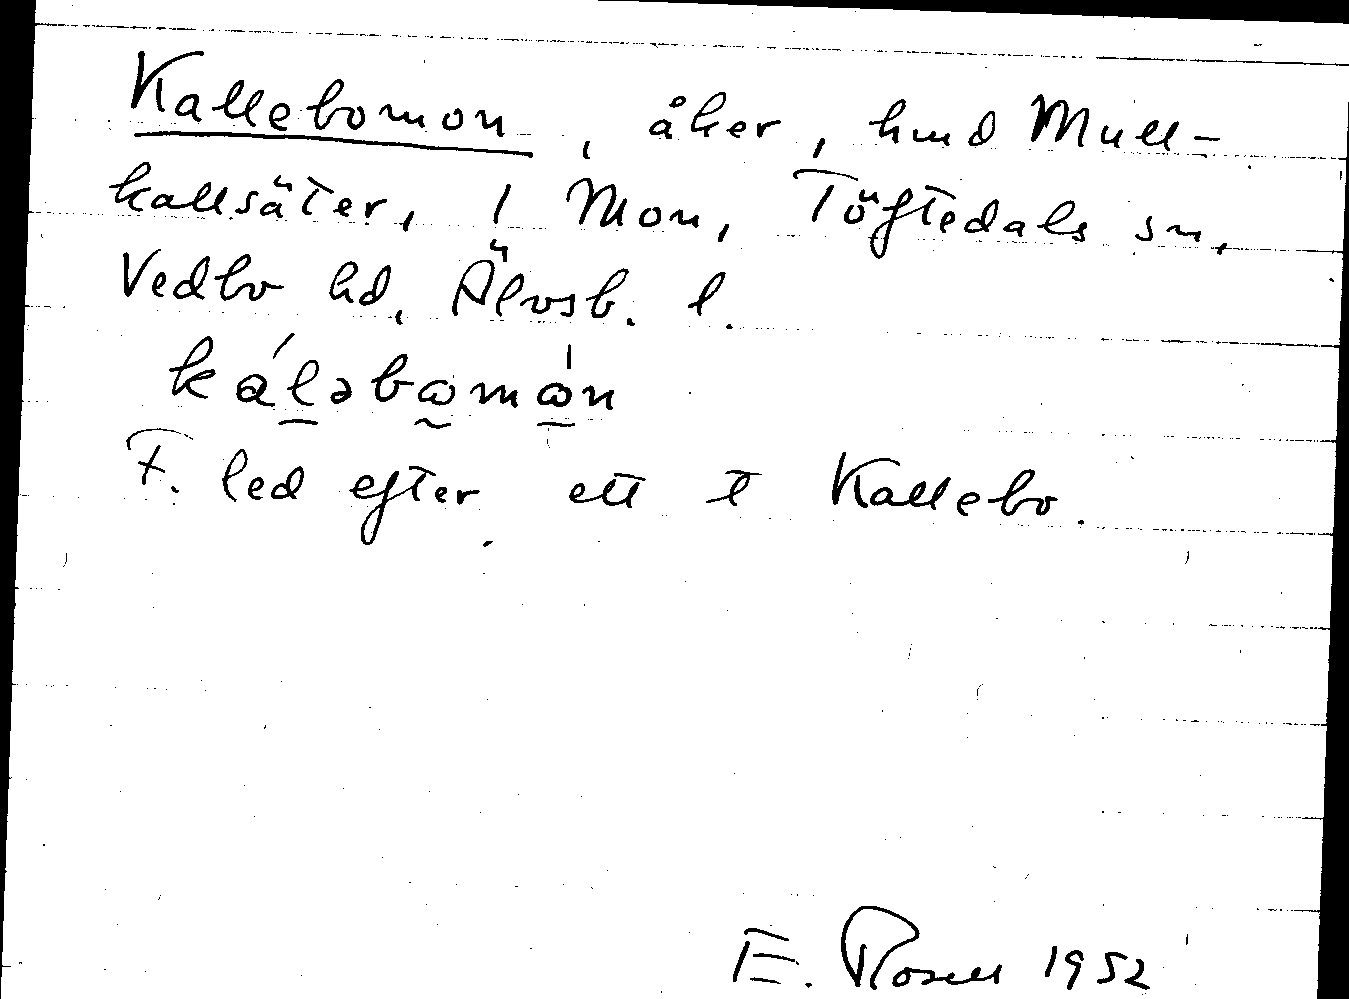 Kallebomon, åker, hmd Mull-
kallsäter, 1 Mon, Töftedals sn,
Vedbo hd, Älvsb. l.
káləbωmώn
F. led efter ett t Kallebo.
E. Rosell 1952